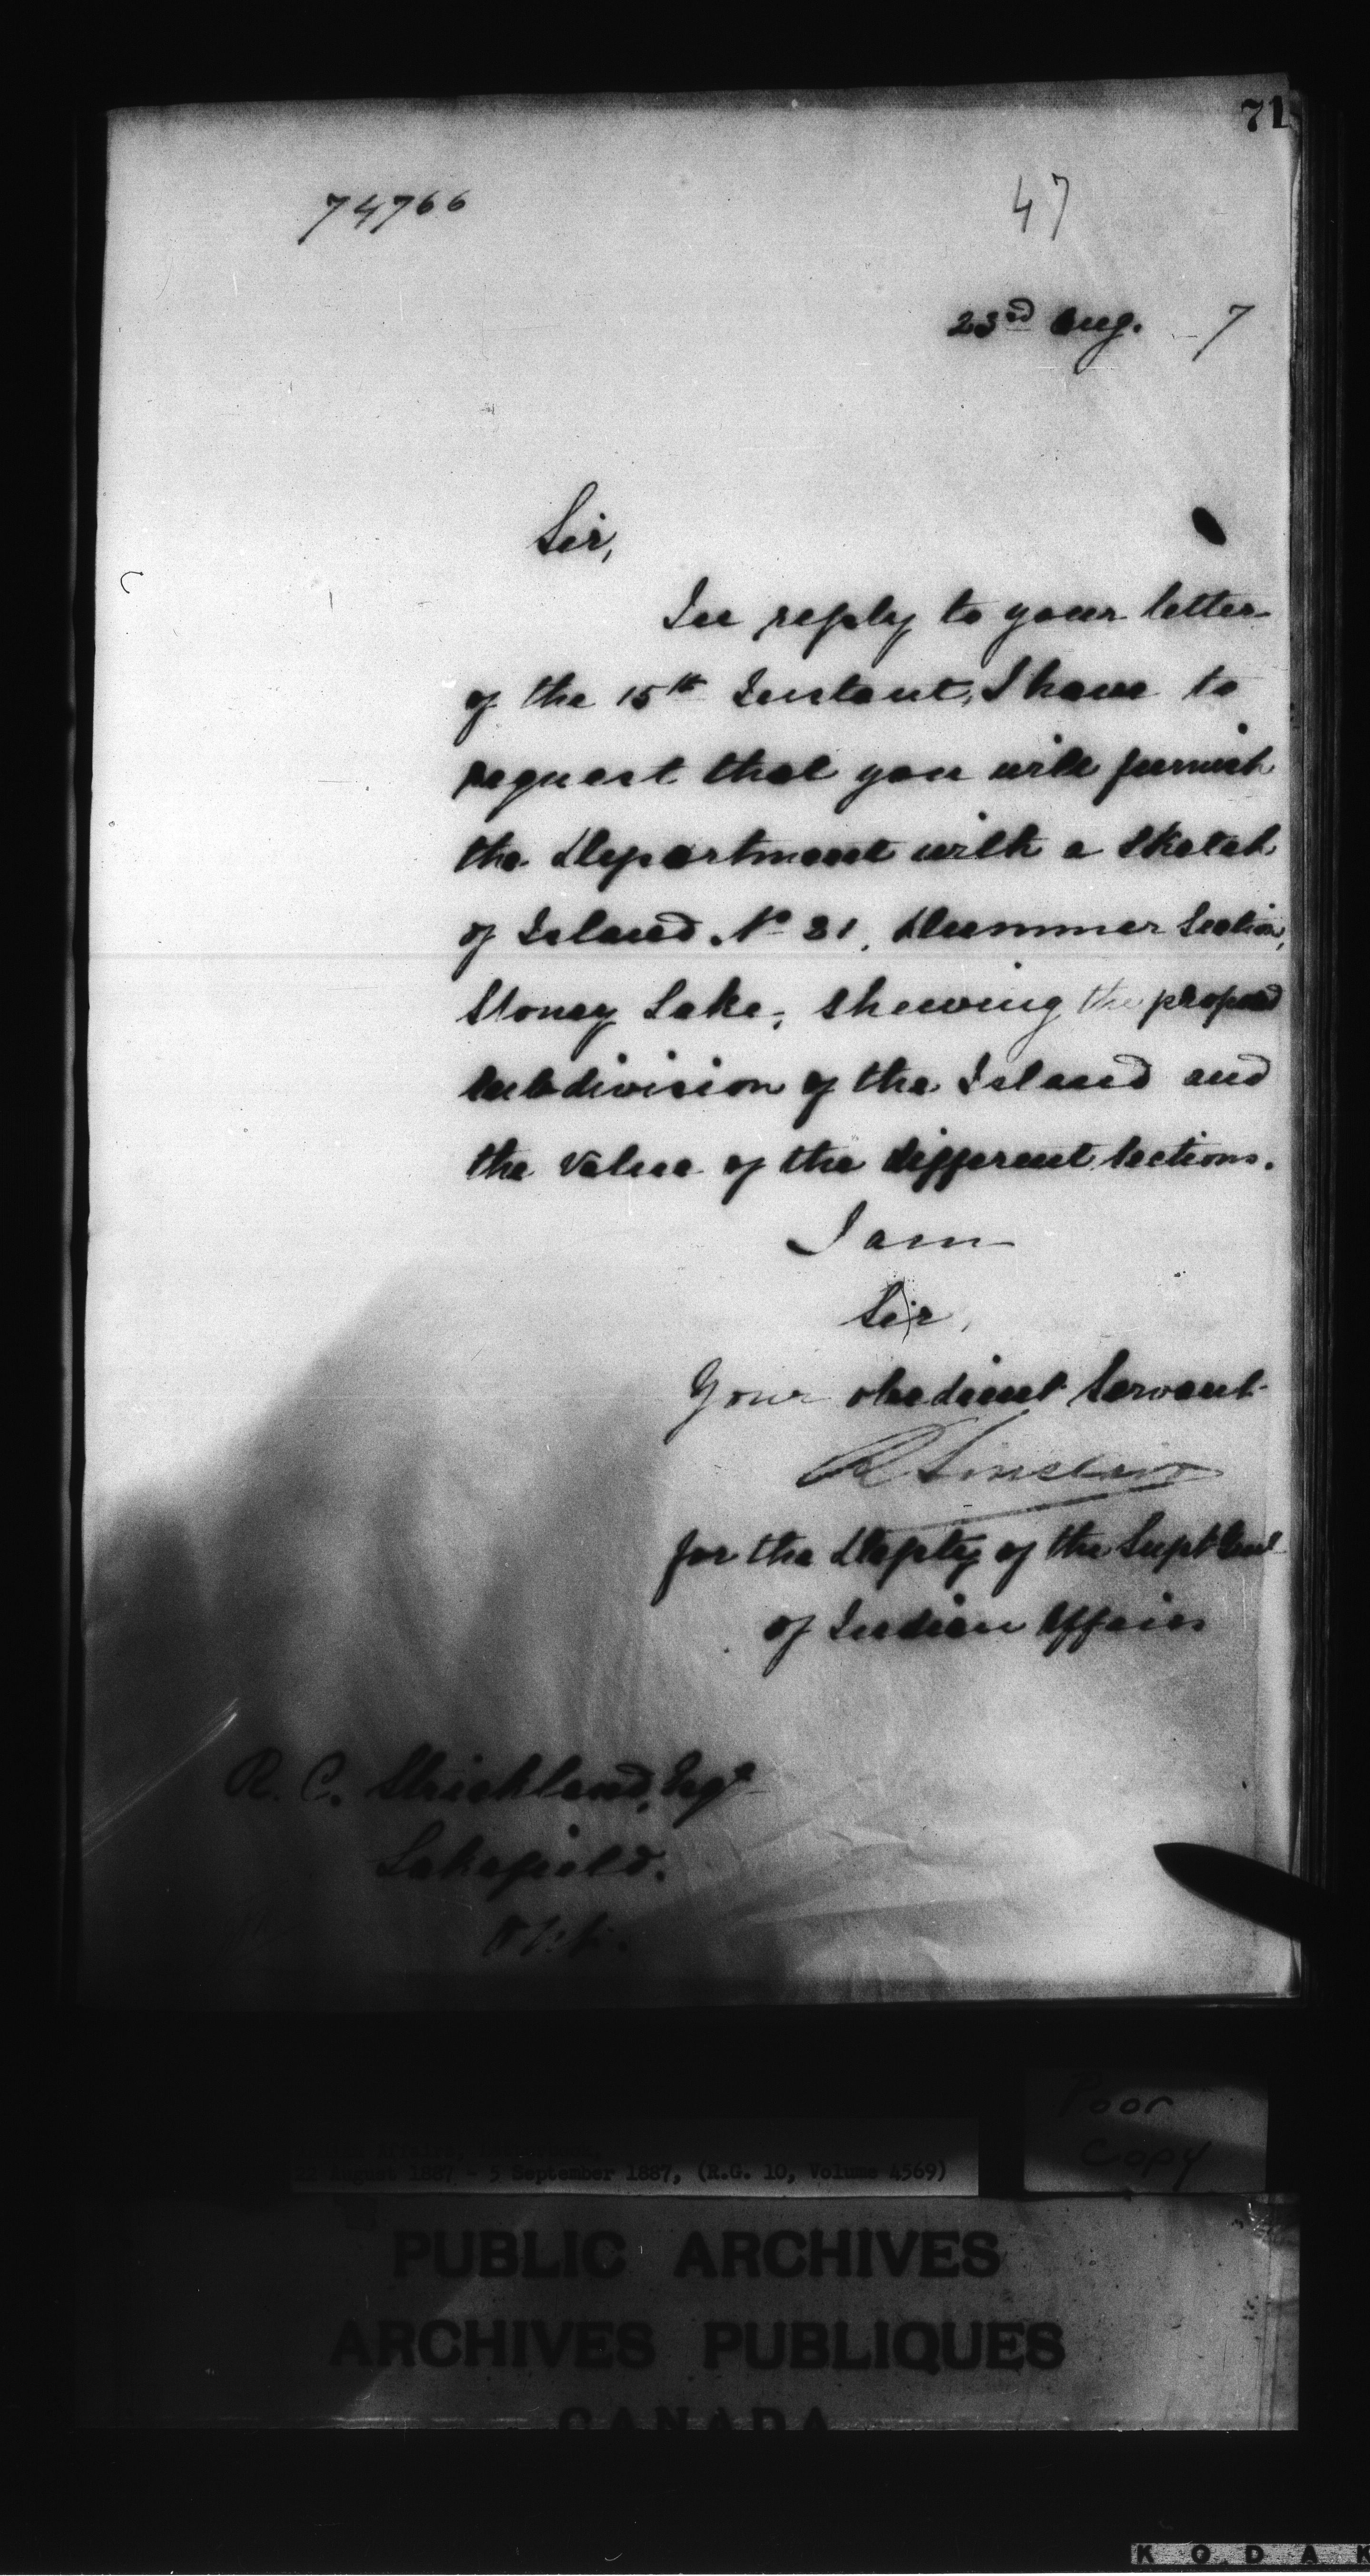 71
74766
47
23rd Aug. 7
Sir,
In reply to your letter
of the 15th Instant, I have to
request that you will furnish
the Department with a sketch
of Island No 31, Dummer Section,
Stoney Lake, shewing the proposed
subdivision of the Island and
the value of the different sections.
I am
Sir,
Your obedient servant
R Sinclair
for the Depty of the Supt Genl
of Indian Affairs
R. C. Strickland, Esqr
Lakefield.
Ont.
Poor
Copy
August 1887 - 5 September 1887, (R.G. 10, Volume 4569)
PUBLIC ARCHIVES
ARCHIVES PUBLIQUES
CANADA
KODAK